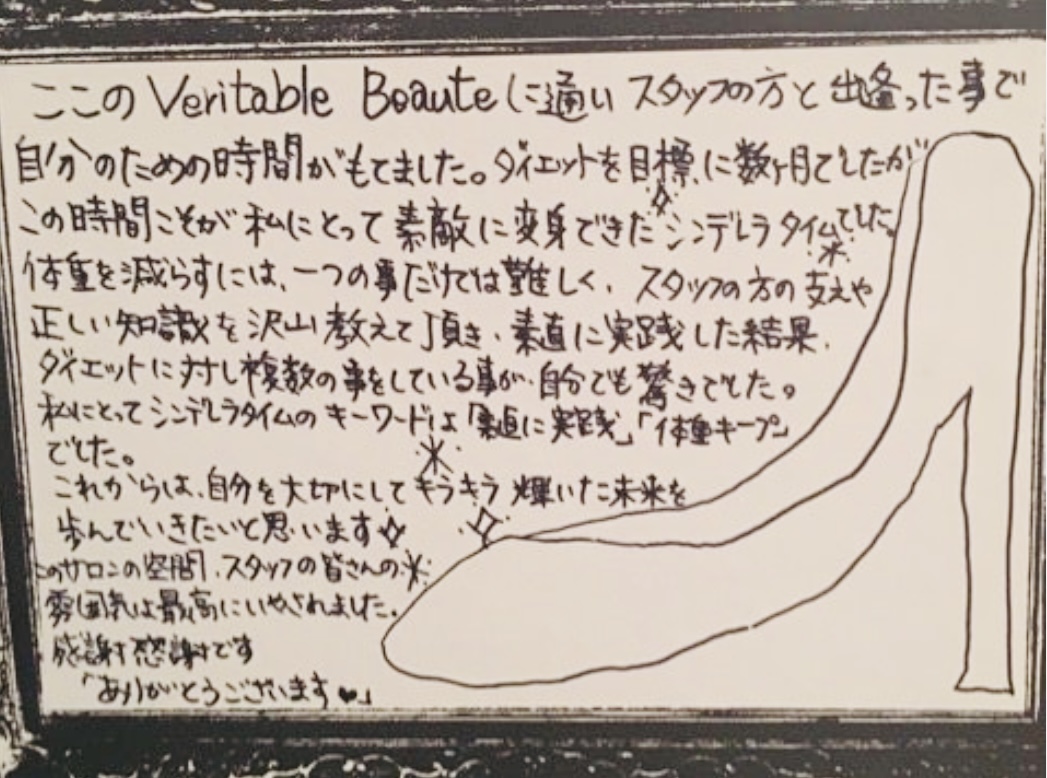 ここの Veritable Beauteに通い スタッフの方と出逢った事で
自分のための時間がもてました。ダイエットを目標に数ヶ月でしたが
この時間こそが私にとって素敵に変身できたシンデレラタイムでした。
体重を減らすには、一つの事だけでは難しく、スタッフの方の支えや
正しい知識を沢山教えて頂き、素直に実践した結果、
ダイエットに対し複数の事をしている事が、自分でも驚きでした。
私にとってシンデレラタイムのキーワードは「素直に実践」「体重キープ」
でした。
これからは、自分を大切にしてキラキラ輝いた未来を
歩んでいきたいと思います
このサロンの空間、スタッフの皆さんの
雰囲気は最高にいやされました。
感謝感謝です
「ありがとうございます♥」